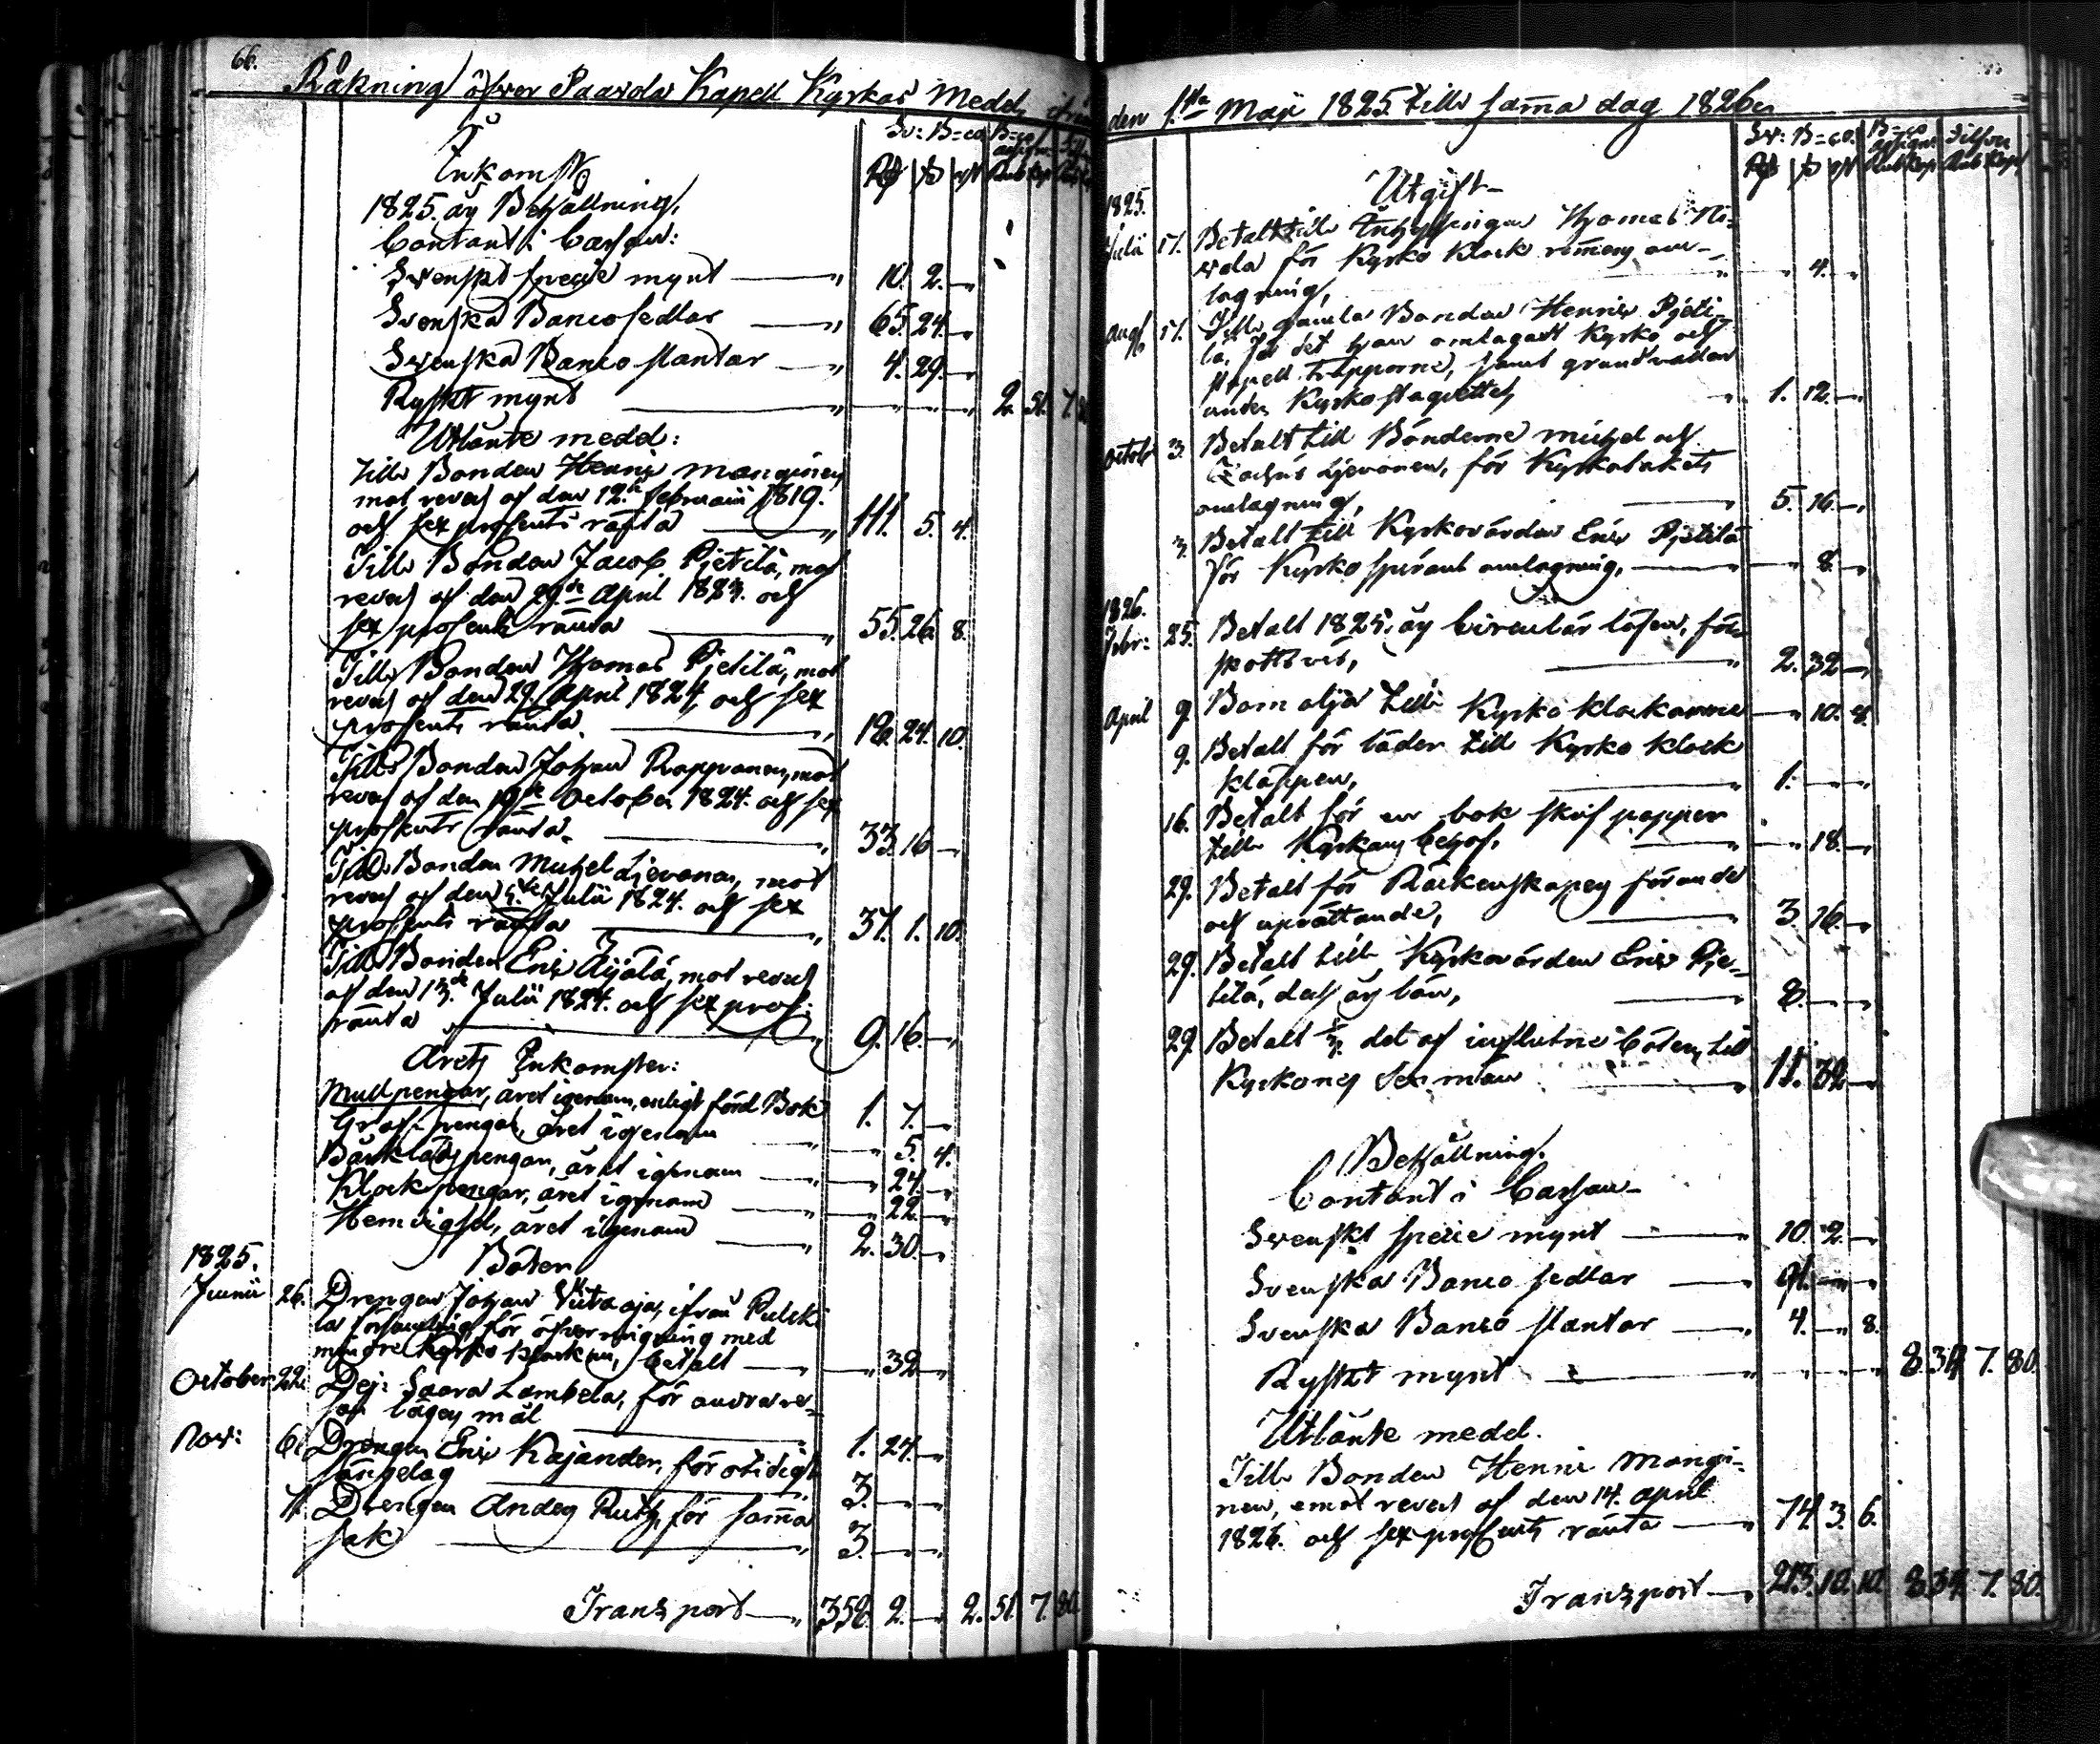 66.
Räkning öfver Paavola Kapell Kyrkas Medel, ifrån
Inkomst
Sv: B=co B=co
1825 års Behållning,
Contant i Cassan:
Svenskt specie mynt — 10. 2. —
Svenska Banco sedlar — 65. 24. —
Svenska Banco slantar — 4. 29. —
Ryskt mynt — 2. 51. 7. 80
Utlånte medel:
Till Bonden Henric Manginen
mot revers af den 12:te Februarii 1819.
och sex prosents ränta — 111. 5. 4.
Till Bonden Jacob Pietilä, mot
revers af den 29:de April 1823. och
sex prosents ränta — 55. 26. 8.
Till Bonden Thomas Pietilä, mot
revers af den 29 April 1824, och sex
prosents ränta. — 18. 24. 10.
Till Bonden Johan Rappanen, mot
revers af den October 1824. och sex
prosents ränta. — 33. 16 —
Till Bonden Michel Ljevonen, mot
revers af den Julii 1824. och sex
prosents ränta — 37. 1. 10.
Till Bonden Eric Äijälä, mot revers
af den 13:de Julii 1824. och sex pros:
ränta — 9. 16. —
Årets Inkomster:
Mullpengar, året igenom, enligt förd Bok 1. 7. —
Graf-pengar, året igenom — 5. 4.
Bårklädspengar, året igenom — 24. —
Klockpengar, året igenom — 22. —
Hemvigsel, året igenom — 2. 30. —
1825.
Böter
Junii 26. Drengen Johan Viitaoja, ifrån Pulcki
la församling, för öfverringning med
mindre Kyrko klockan, betalt — 32 —
October 22. Pig: Saara Lambela, för andra re-
san lägersmål — 1. 24. —
Nov: 6. Drengen Eric Kajander, för otidigt
sängelag — 3. —
Drengen Anders Ruth, för samma
sak — 3. —
Transport — 358. 2. — 2. 51. 7. 80.
den 1:sta Maji 1825 till samma dag 1826.
Utgift
Sv: B=co. B=co assign: Silfver
1825.
Julii 17. Betalt till Inhysingen Thomas Ni-
vala för Kyrko Klock rämens om-
lagning, — 4. —
Aug: 17. Till gamla Bonden Henric Pjeti-
lä, för det han omlagat Kyrko och
stapell trapporne, samt grundvalen
under Kyrko staquettet 1. 12. —
Octob 3. Betalt till Bönderne Michel och
Zachris Ljevonen, för Kyrkotakets
omlagning, — 5. 16. —
3. Betalt till Kyrkovärden Eric Pjetilä
för Kyrko spirans omlagning, — 8. —
1826.
Febr: 25. Betalt 1825. års Circulär lösen, för-
skottsvis, — 2. 32 —
April 9. Bomolja till Kyrko klockorne — 10. 8.
9. Betalt för läder till Kyrko klock
kläppen, — 1. —
16. Betalt för en bok skrif papper
till Kyrkans behof. — 18. —
29. Betalt för Räckenskapens förande
och uprättande, — 3. 16. —
29. Betalt till Kyrkovärden Eric Pje-
tilä, dess års lön, — 8. —
29. Betalt ⅓ det af influtne böter, till
Kyrkones Sexmän — 11. 32 —
Behållning.
Contant i Cassan —
Svenskt specie mynt — 10. 2. —
Svenska Banco sedlar — 91. —
Svenska Banco slantar — 4. — 8.
Ryskt mynt — 8. 39. 7. 80.
Utlånte medel.
Till Bonden Henric Mangi-
nen, emot revers af den 14. april
1826. och sex prosents ränta — 74. 3. 6.
Transport — 213. 10. 10. 8. 39. 7. 80.